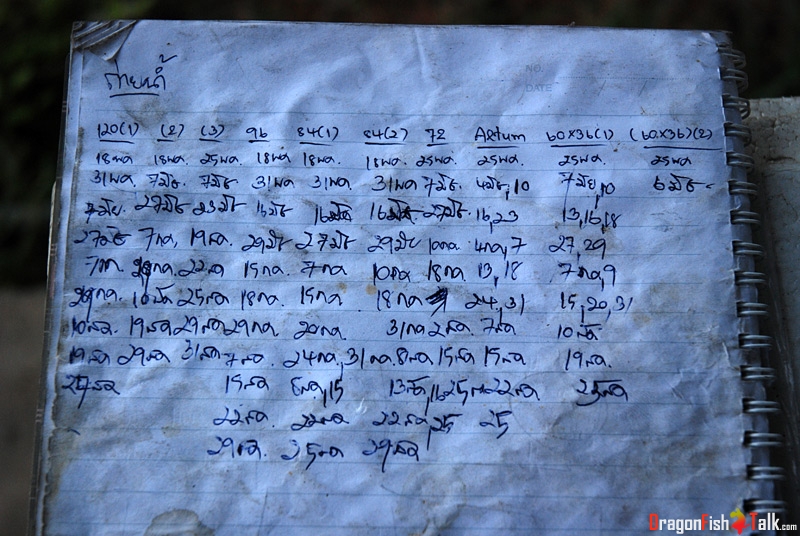 ถ่ายน้ำ
NO.
DATE
120(1) (2) (3) 96 84(1) 84(2) 72 Artum 60x36(1) (60x36)(2)
18พค 18พค. 25พค. 18พค 18พค. 18พค. 25พค. 25พค. 25พค. 25พค
31พค. 7มิย. 7มิย. 31พค 31พค. 31พค 7มิย. 4มิย,10 7มิย,10 6มิย.
7มิย. 27มิย 23มิย 16มิย 16มิย 16มิย 27มิย. 16,23 13,16,18
27มิย 7กค, 19กค. 29มิย 27มิย 29มิย 10กค. 4กค,7 27,29
7กค. 22กค 15กค. 7กค 10กค 18กค 13,18 7กค,9
10สค 25กค 18กค. 15กค 18กค 24,31 15,20,31
10สค. 19สค 29กค 29กค. 20กค. 31กค 2สค. 7สค 10สค
19สค 29สค 31กค 7สค. 24กค,31กค. 8สค 15สค 15สค 19สค.
15สค 8สค,15 22สค 25สค
22สค. 22สค 22สค,25 25
29สค.
DragonFishTalk.com